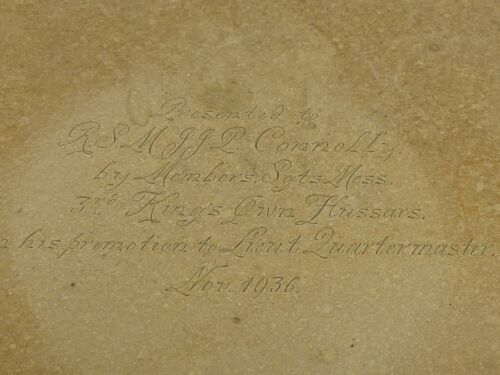 Presented to
R.S.M J.J.P. Connolly.
by Members. Sgts Mess.
3rd. King's Own Hussars.
n his promotion to Lieut Quartermaster.
Nov. 1936.